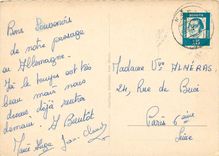 Bons Souvenirs
de notre passage
en Allemagne.
Ici le temps est très
beau mais nous
devons déjà rentrer
demain. A Bientôt
Marie
Madame Vve ALMÉRAS
24, Rue de Buci
Paris 6ème
Seine